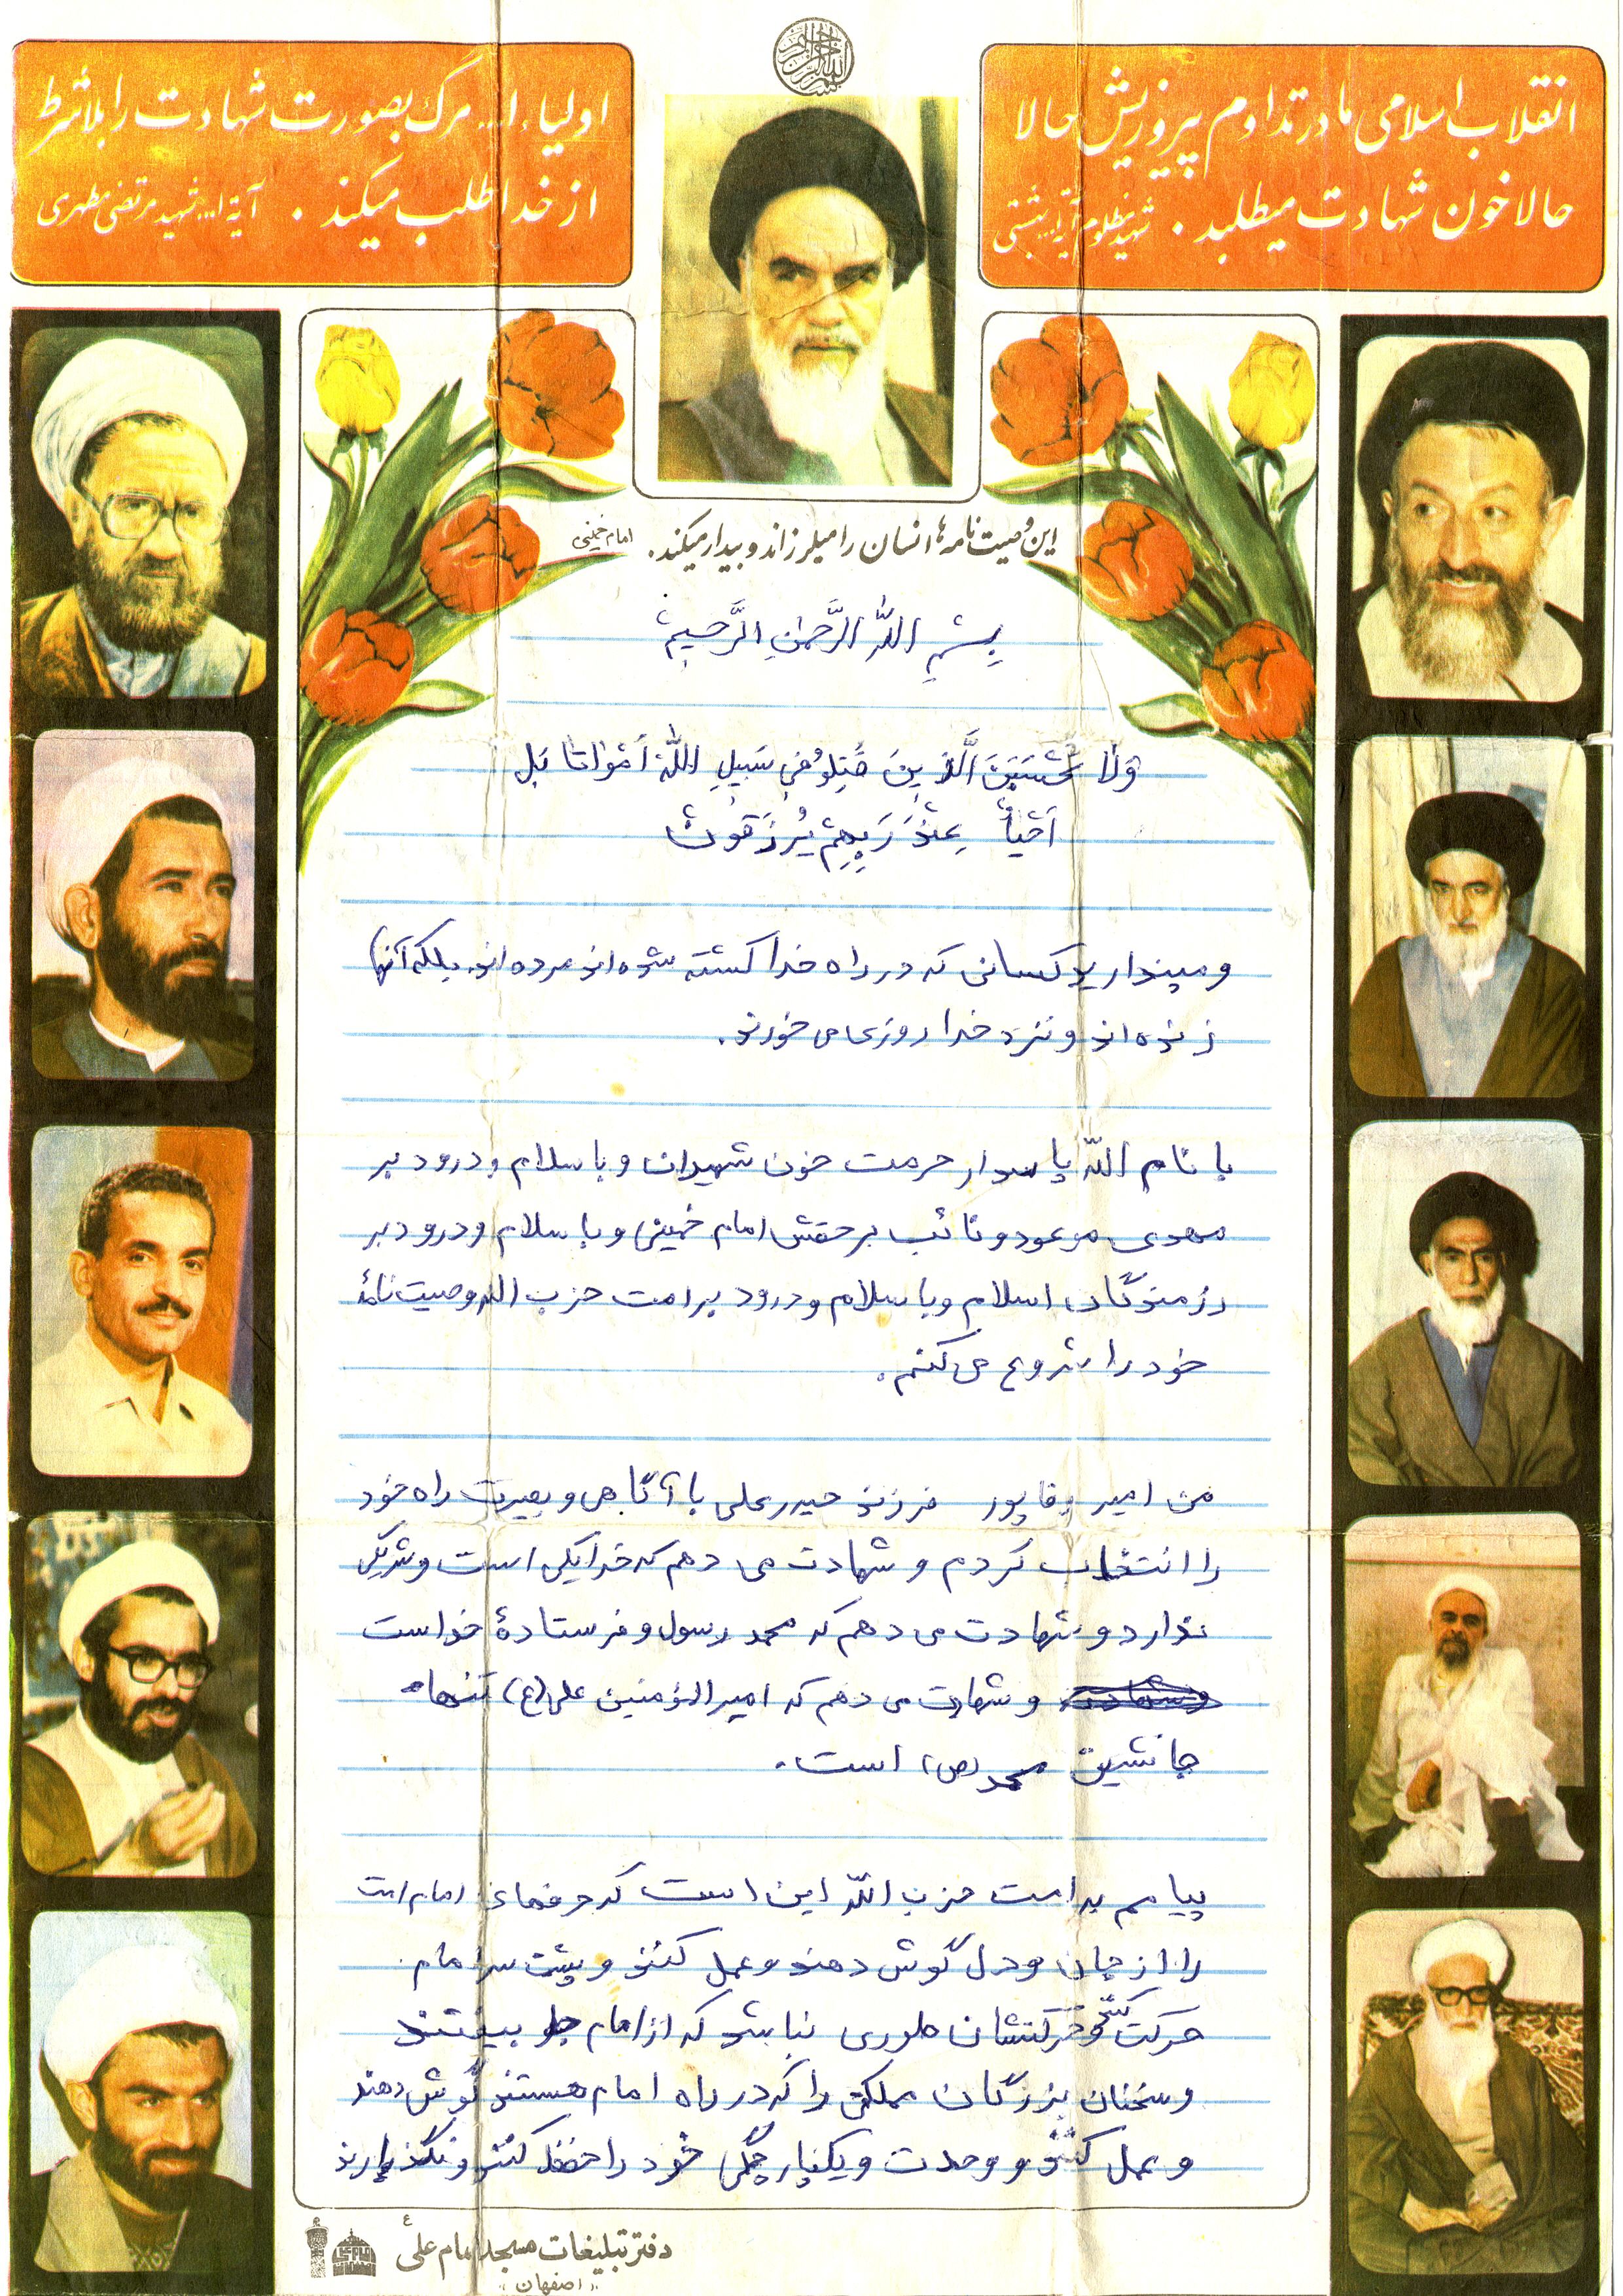 انقلاب اسلامی ما در تداوم پیروزیش حالا
حالا خون شهادت میطلبد . شهید مظلوم آیة ا... بهشتی
اولیاء ا... مرگ بصورت شهادت را بلاشرط
از خدا طلب میکند . آیة ا... شهید مرتضی مطهری
این وصیت نامه‌ها انسان را میلرزاند و بیدار میکند. امام خمینی
بِسْمِ اللهِ الرَّحْمنِ الرَّحیمْ
وَلا تَحْسَبَنَ الَّذینَ قُتِلوُ فی سَبیلِ اللهْ اَمْواتا بَل
اَحْیأٌ عِنْدَ رَبِهِمْ یُرْزَقُونْ
و مپندارید کسانی که در راه خدا کشته شده اند مرده اند بلکه آنها
زنده اند و نزد خدا روزی می خورند.
با نام اللّه پاسدار حرمت خون شهیدان و با سلام و درود بر
مهدی موعود و نائب بر حقش امام خمینی و با سلام و درود بر
رزمندگان اسلام و با سلام و درود بر امت حزب الله وصیت نامهٔ
خود را شروع می کنم.
من امیر وفاپور فرزند حیدرعلی با آگاهی و بصیرت راه خود
را انتخاب کردم و شهادت می دهم که خدا یکی است و شریکی
ندارد و شهادت می دهم که محمد رسول و فرستادهٔ خداست
و شهادت می دهم که امیرالمؤمنین علی (ع) تنها
جانشین محمد (ص) است.
پیامم به امت حزب اللّه این است که حرفهای امام امت
را از جان و دل گوش دهند و عمل کنند و پشت سر امام
حرکت کنند و حرکتشان طوری نباشد که از امام جلو بیفتند
و سخنان بزرگان مملکتی را که در راه امام هستند گوش دهند
و عمل کنند و وحدت و یکپارچگی خود را حفظ کنند و نگذارند
دفتر تبلیغات مسجد امام علی ع
«اصفهان»